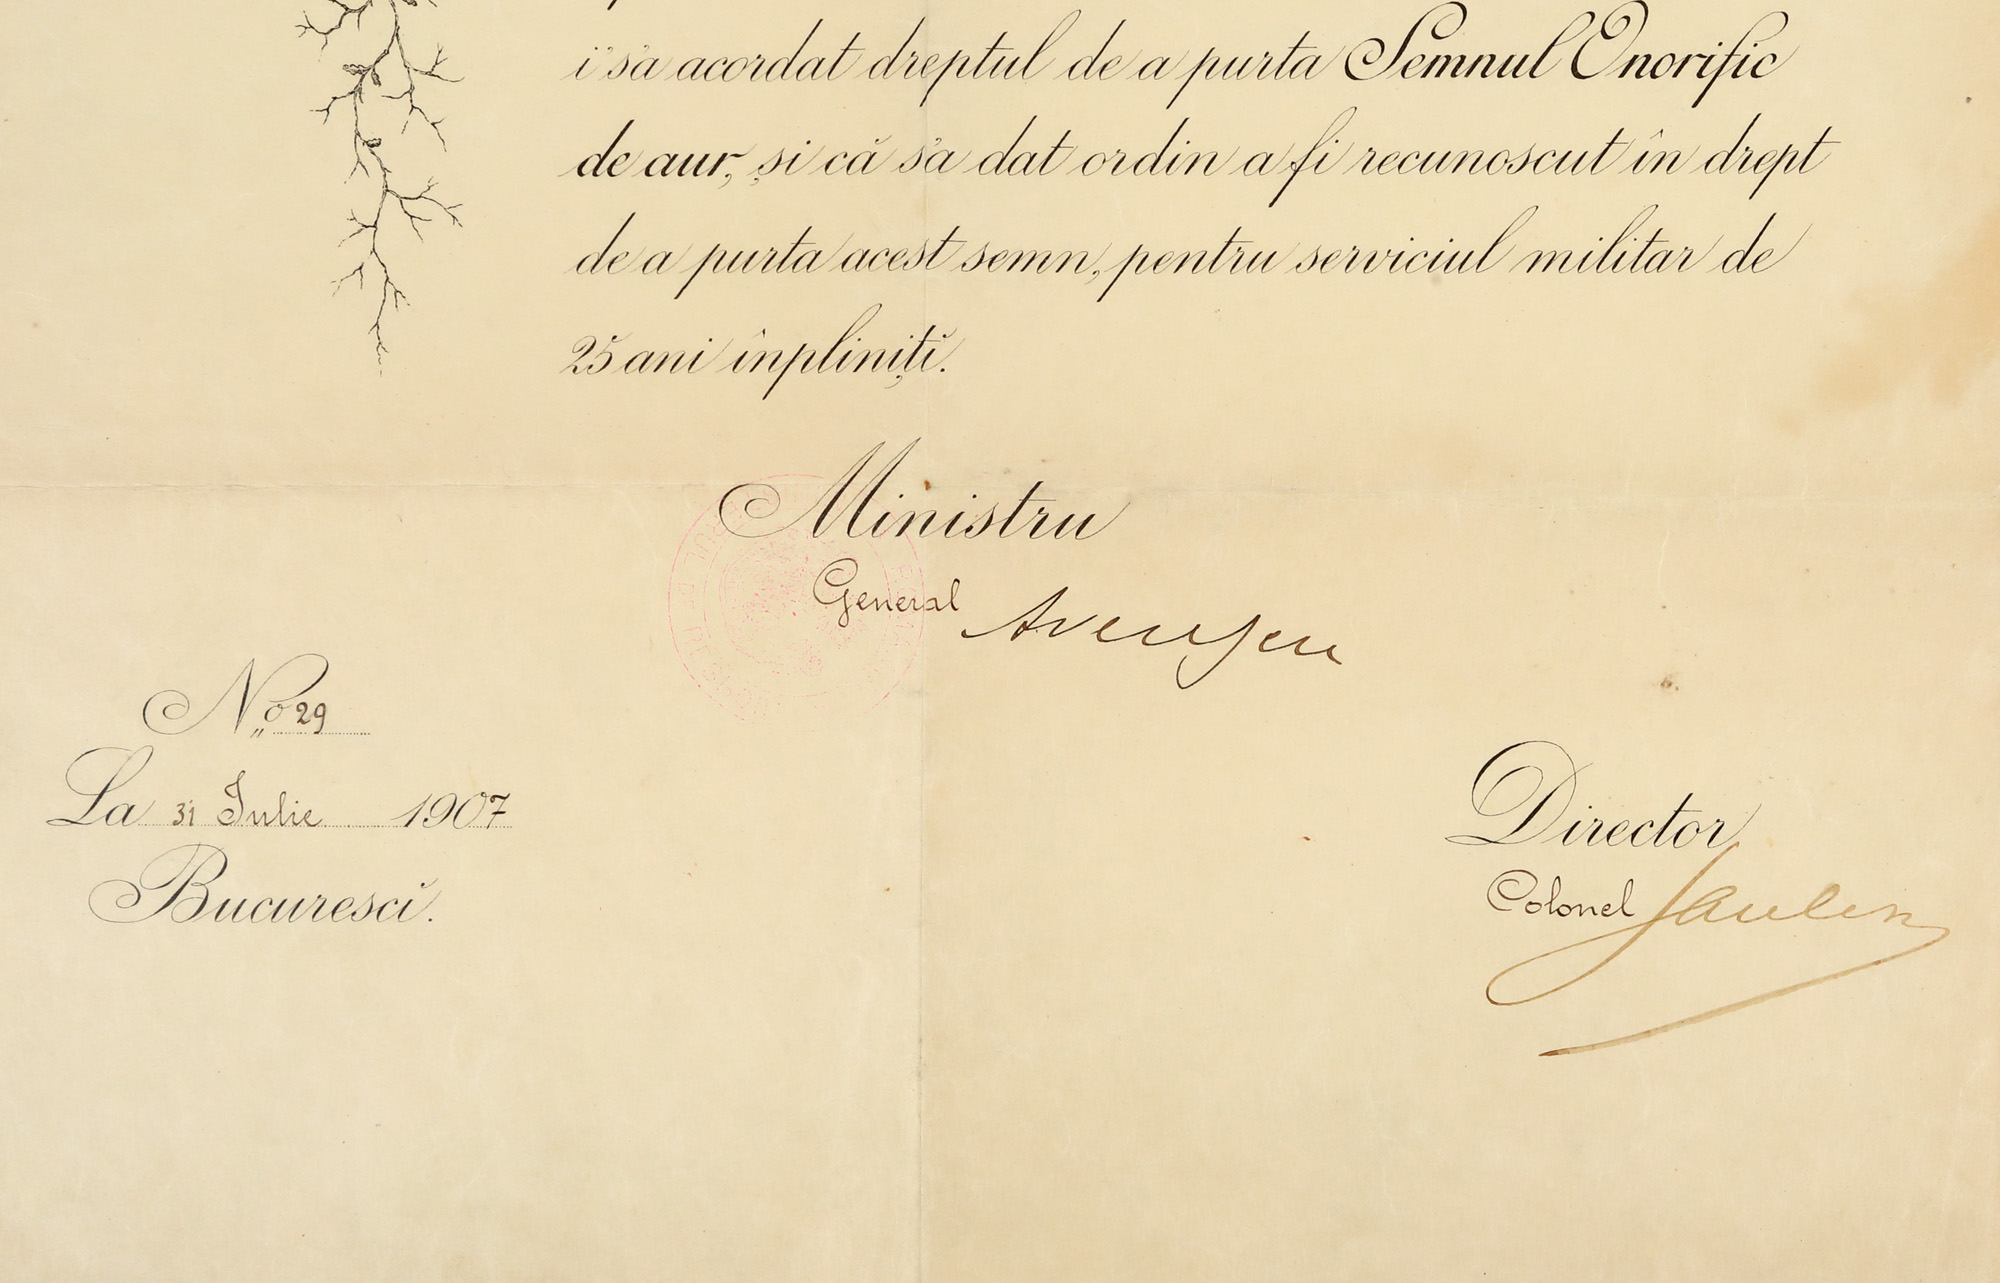 i s'a acordat dreptul de a purta Semnul Onorific
de aur, și că s'a dat ordin a fi recunoscut în drept
de a purta acest semn, pentru serviciul militar de
25 ani înplinițĭ.
Ministru
General Averescu
No 29
La 31 Iulie 1907
Bucurescĭ.
Director
Colonel